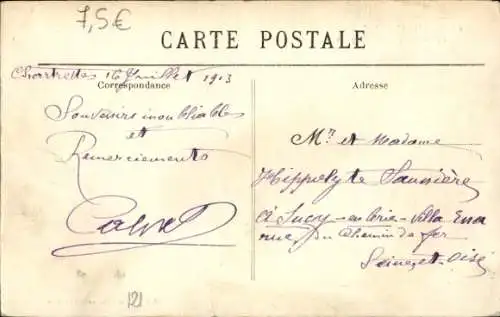 7,5€
CARTE POSTALE
Chartrettes 16 Juillet 1913
Correspondance
Adresse
Souvenirs inoubliables
et
Remerciements
Mr et Madame
Hippolyte Saunière
à Sucy-en-Brie-Villa
rue du Chemin de fer
Seine-et-Oise
121